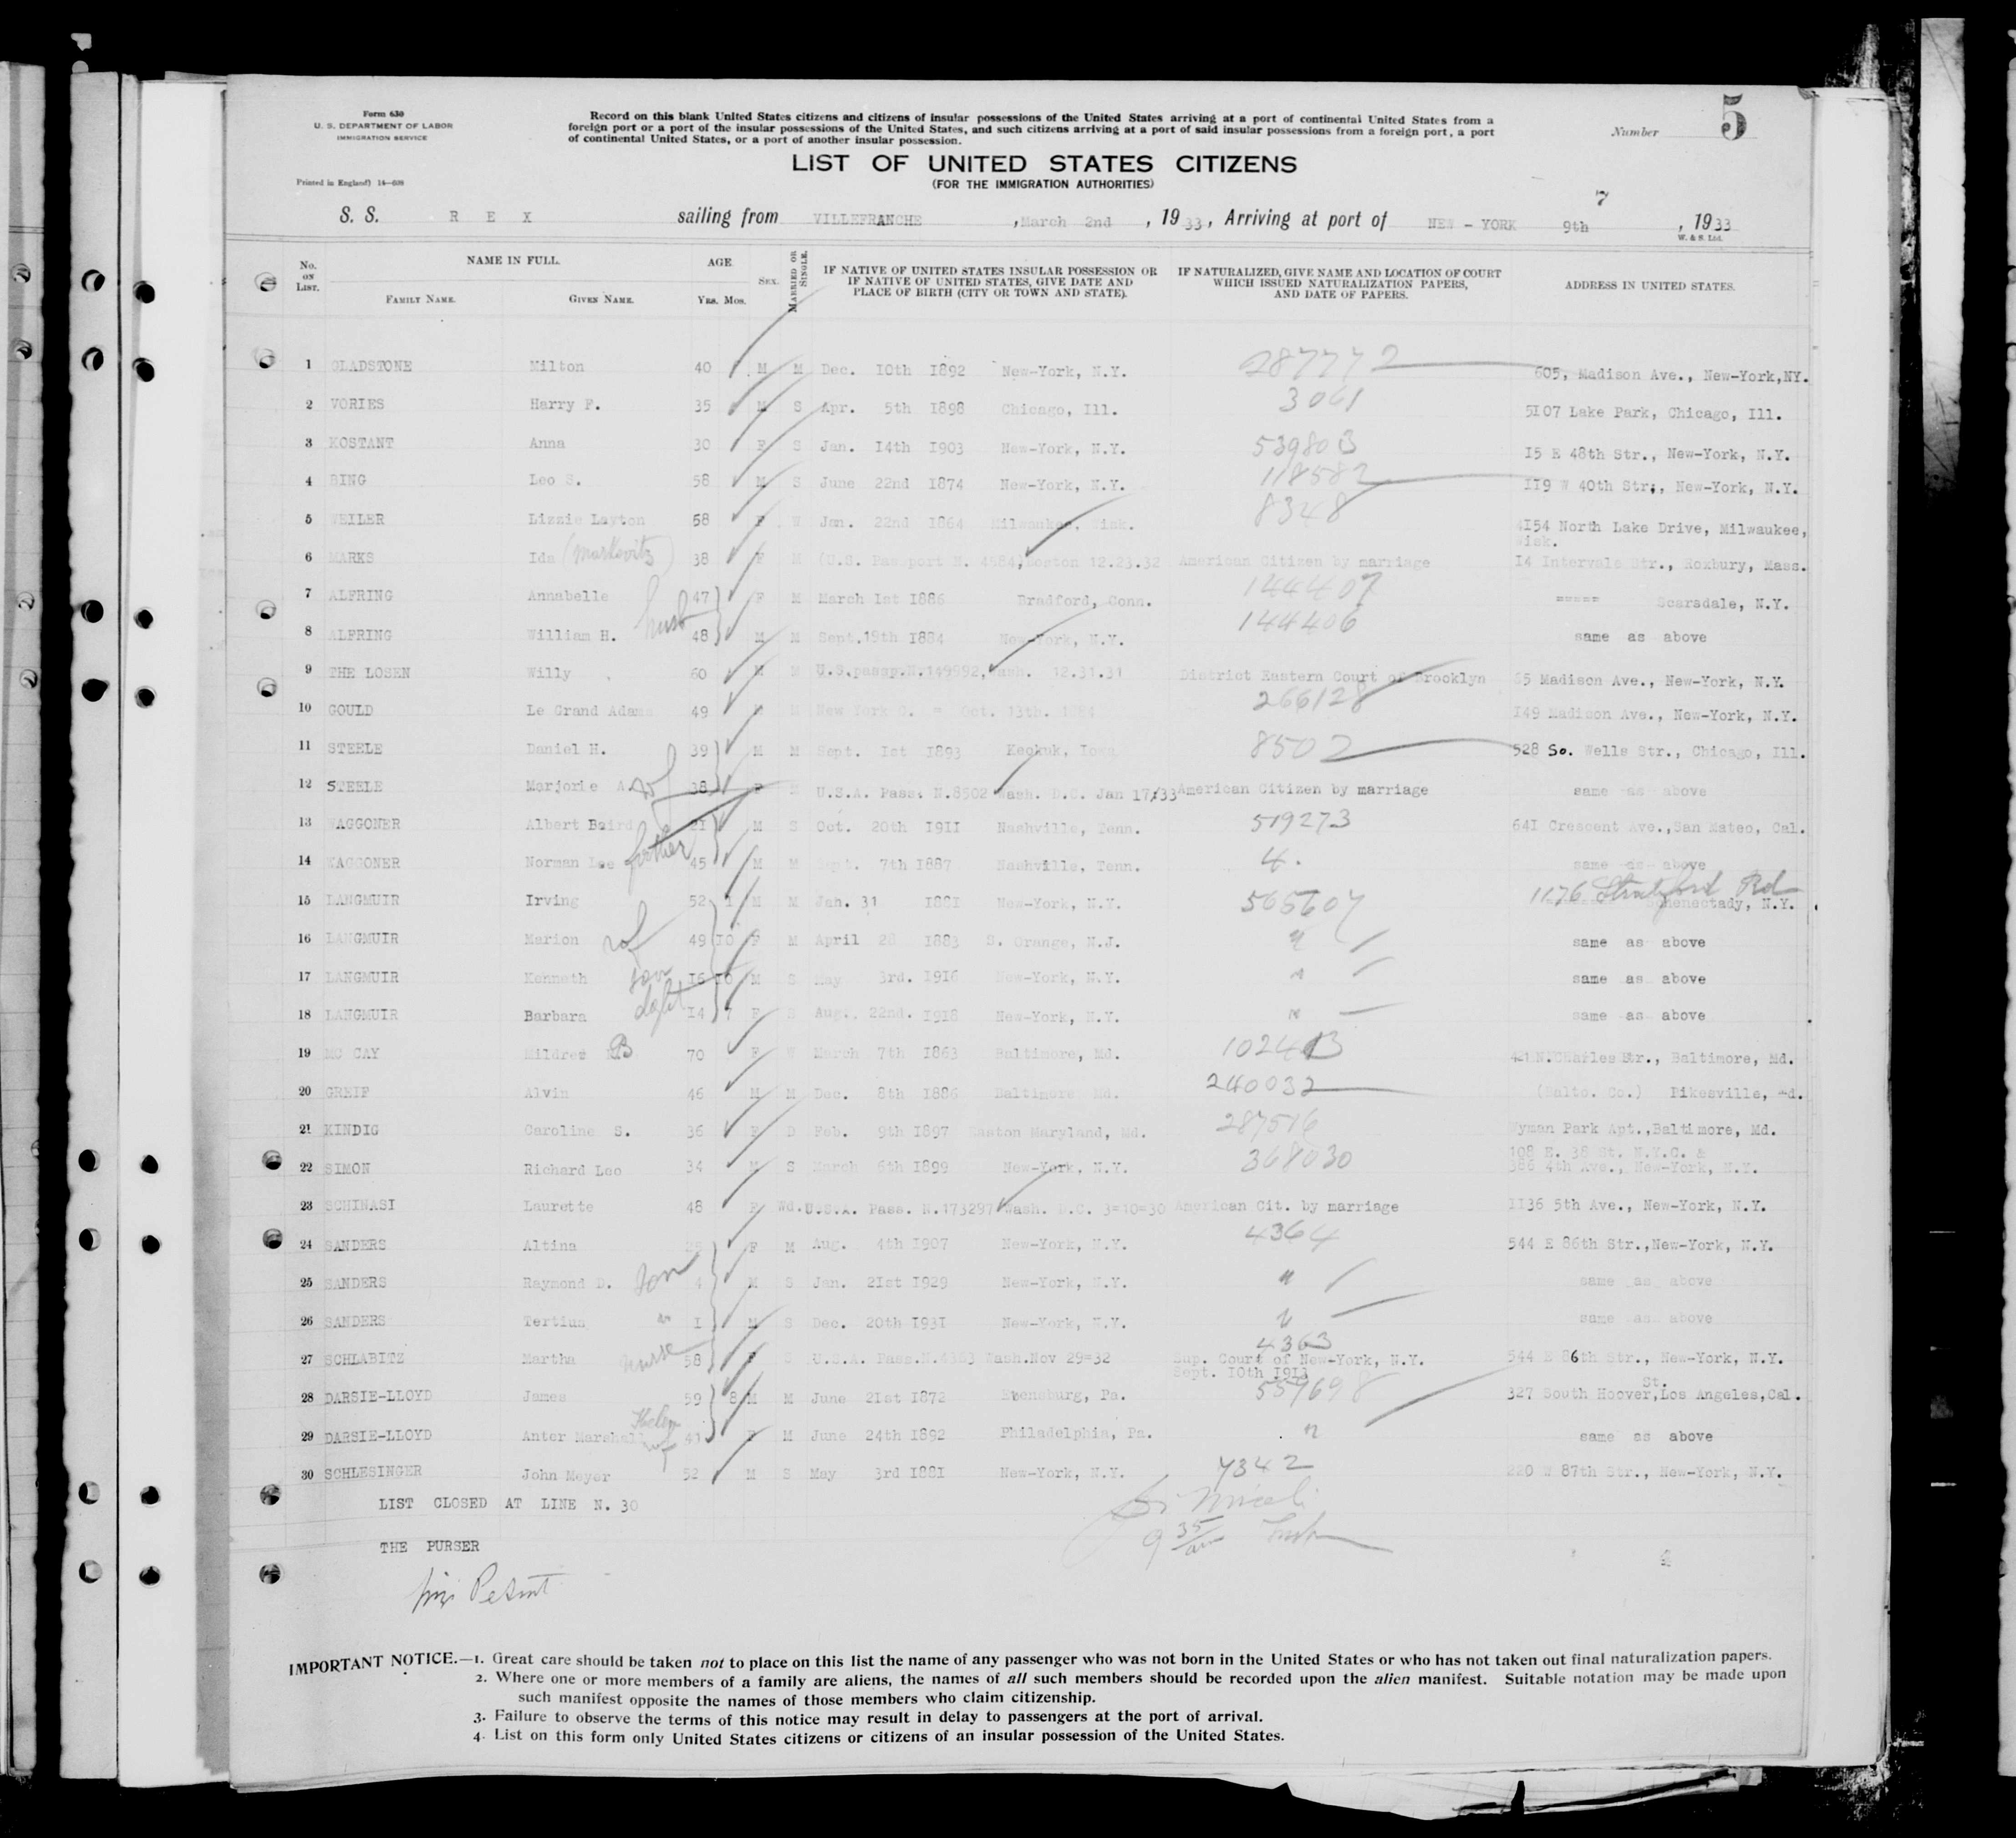 Form 630
U. S. DEPARTMENT OF LABOR
IMMIGRATION SERVICE
Printed in England) 14—608
Record on this blank United States citizens and citizens of insular possessions of the United States arriving at a port of continental United States from a
foreign port or a port of the insular possessions of the United States, and such citizens arriving at a port of said insular possessions from a foreign port, a port
of continental United States, or a port of another insular possession.
Number 5
LIST OF UNITED STATES CITIZENS
(FOR THE IMMIGRATION AUTHORITIES)
7
S. S. R E X sailing from VILLEFRANCHE , March 2nd , 19 33, Arriving at port of NEW - YORK 9th , 19 33
W. & S. Ltd.
No. ON LIST. NAME IN FULL. FAMILY NAME. GIVEN NAME. AGE YRS. MOS. SEX. MARRIED OR SINGLE. IF NATIVE OF UNITED STATES INSULAR POSSESSION OR IF NATIVE OF UNITED STATES, GIVE DATE AND PLACE OF BIRTH (CITY OR TOWN AND STATE). IF NATURALIZED, GIVE NAME AND LOCATION OF COURT WHICH ISSUED NATURALIZATION PAPERS, AND DATE OF PAPERS. ADDRESS IN UNITED STATES.
1 GLADSTONE Milton 40 M M Dec. 10th 1892 New-York, N.Y. 287772 605, Madison Ave., New-York,NY.
2 VORIES Harry F. 35 M S Apr. 5th 1898 Chicago, Ill. 3061 5107 Lake Park, Chicago, Ill.
3 KOSTANT Anna 30 F S Jan. 14th 1903 New-York, N.Y. 539803 15 E 48th Str., New-York, N.Y.
4 BING Leo S. 58 M S June 22nd 1874 New-York, N.Y. 118582 119 W 40th Str., New-York, N.Y.
5 WEILER Lizzie Layton 58 F W Jan. 22nd 1864 Milwaukee, Wisk. 8348 4154 North Lake Drive, Milwaukee, Wisk.
6 MARKS Ida (Markovitz) 38 F M (U.S. Passport N. 4884, Boston 12.23.32 American Citizen by marriage 14 Intervale Str., Roxbury, Mass.
7 ALFRING Annabelle 47 F M March 1st 1886 Bradford, Conn. 144407 ===== Scarsdale, N.Y.
8 ALFRING William H. husb 48 M M Sept.19th 1884 New-York, N.Y. 144406 same as above
9 THE LOSEN Willy 60 M M U.S.passp.N.149992, Wash. 12.31.31 District Eastern Court of Brooklyn 65 Madison Ave., New-York, N.Y.
10 GOULD Le Grand Adams 49 M M New York C. = Oct. 13th. 1884 266128 149 Madison Ave., New-York, N.Y.
11 STEELE Daniel H. 39 M M Sept. 1st 1893 Keokuk, Iowa 8502 528 So. Wells Str., Chicago, Ill.
12 STEELE Marjorie A. wf 38 F M U.S.A. Pass. N.8502 Wash. D.C. Jan 17/33 American Citizen by marriage same as above
13 WAGGONER Albert Baird 21 M S Oct. 20th 1911 Nashville, Tenn. 519273 641 Crescent Ave.,San Mateo, Cal.
14 WAGGONER Norman Lee father 45 M M Sept. 7th 1887 Nashville, Tenn. 4. same as above
15 LANGMUIR Irving 52 1 M M Jan. 31 1881 New-York, N.Y. 565607 1176 Stratford Rd Schenectady, N.Y.
16 LANGMUIR Marion wf 49 10 F M April 28 1883 S. Orange, N.J. " same as above
17 LANGMUIR Kenneth son 16 10 M S May 3rd. 1916 New-York, N.Y. " same as above
18 LANGMUIR Barbara daht 14 7 F S Aug. 22nd. 1918 New-York, N.Y. " same as above
19 MC CAY Mildred B 70 F W March 7th 1863 Baltimore, Md. 102413 421 N.Charles Str., Baltimore, Md.
20 GREIF Alvin 46 M M Dec. 8th 1886 Baltimore Md. 240032 (Balto. Co.) Pikesville, Md.
21 KINDIG Caroline S. 36 F D Feb. 9th 1897 Easton Maryland, Md. 287516 Wyman Park Apt.,Baltimore, Md.
22 SIMON Richard Leo 34 M S March 6th 1899 New-York, N.Y. 368030 108 E. 38 St. N.Y.C. & 386 4th Ave., New-York, N.Y.
23 SCHINASI Laurette 48 F Wd. U.S.A. Pass. N.173297 Wash. D.C. 3=10=30 American Cit. by marriage 1136 5th Ave., New-York, N.Y.
24 SANDERS Altina 25 F M Aug. 4th 1907 New-York, N.Y. 4364 544 E 86th Str.,New-York, N.Y.
25 SANDERS Raymond D. Son 4 M S Jan. 21st 1929 New-York, N.Y. " same as above
26 SANDERS Tertius " 1 M S Dec. 20th 1931 New-York, N.Y. " same as above
27 SCHLABITZ Martha nurse 58 F S U.S.A. Pass.N.4363 Wash.Nov 29=32 4363 Sup. Court of New-York, N.Y. Sept. 10th 1913 544 E 86th Str., New-York, N.Y.
28 DARSIE-LLOYD James 59 8 M M June 21st 1872 Ebensburg, Pa. 559698 327 South Hoover St.,Los Angeles,Cal.
29 DARSIE-LLOYD Anter Marshall Helen wf 41 F M June 24th 1892 Philadelphia, Pa. " same as above
30 SCHLESINGER John Meyer 52 M S May 3rd 1881 New-York, N.Y. 7342 220 W 87th Str., New-York, N.Y.
LIST CLOSED AT LINE N. 30
9 35 am
THE PURSER
IMPORTANT NOTICE.—1. Great care should be taken not to place on this list the name of any passenger who was not born in the United States or who has not taken out final naturalization papers.
2. Where one or more members of a family are aliens, the names of all such members should be recorded upon the alien manifest. Suitable notation may be made upon
such manifest opposite the names of those members who claim citizenship.
3. Failure to observe the terms of this notice may result in delay to passengers at the port of arrival.
4. List on this form only United States citizens or citizens of an insular possession of the United States.